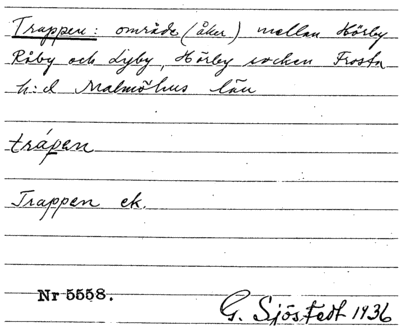 Trappen: område (åker) mellan Hörby
Råby och Lyby, Hörby socken Frosta
h:d Malmöhus län
trápen
Trappen ek.
Nr 5558.
G. Sjöstedt 1936